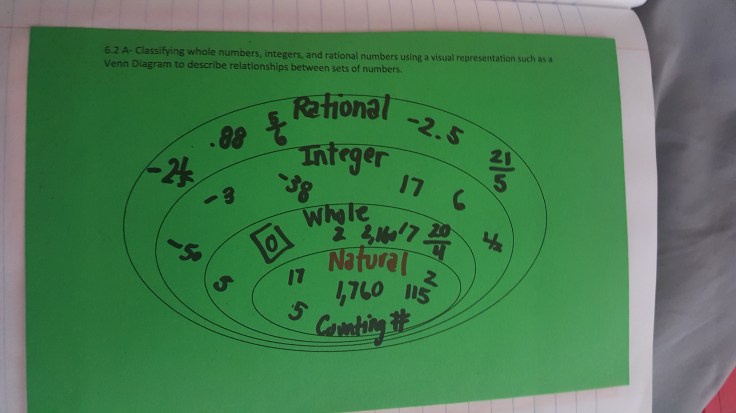 6.2 A- Classifying whole numbers, integers, and rational numbers using a visual representation such as a
Venn Diagram to describe relationships between sets of numbers.
Rational
.88 5/6 -2.5 21/5
Integer
-3 -38 17 6
Whole
-50 0 2 17 20/4
Natural
5 17 1,760 115 2
5
Counting #